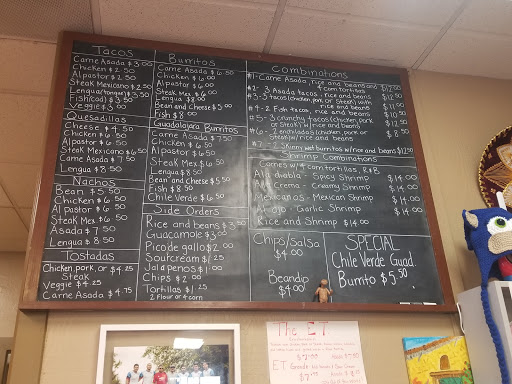 Tacos
Carne Asada $3.00
Chicken $2.50
Al pastor $2.50
Steak Mexicano $2.50
Lengua(tongue)$3.50
Fish(cod) $3.50
Veggie $3.00
Quesadillas
Cheese $4.50
Chicken $6.50
Al pastor $6.50
Steak Mexicano $6.50
Carne Asada $7.50
Lengua $8.50
Nachos
Bean $5.50
Chicken $6.50
Al Pastor $6.50
Steak Mex $6.50
Asada $7.50
Lengua $8.50
Tostadas
Chicken, pork, or $4.25
Steak
Veggie $4.25
Carne Asada $4.75
Burritos
Carne Asada $6.50
Chicken $6.00
Al pastor $6.00
Steak Mex $6.00
Lengua $8.00
Bean and Cheese $5.00
Fish $8.00
Guadalajara Burritos
Carne Asada $7.50
Chicken $6.50
Al Pastor $6.50
Steak Mex $6.50
Lengua $8.50
Bean and Cheese $5.50
Fish $8.50
Chile Verde $6.50
Side Orders
Rice and beans $3.50
Guacamole $3.00
Pico de gallo $2.00
Sourcream $1.25
Jalapenos $1.00
Chips $2.00
Tortillas $1.25
2 Flour or 4 corn
Combinations
#1- Carne Asada, rice and beans and
4 corn tortillas $12.00
#2- 3 Asada tacos, rice and beans $12.50
#3- 3 tacos (chicken, pork, or Steak) with
rice and beans $11.00
#4- 2 Fish tacos, rice and beans $10.50
#5- 3 crunchy tacos (chicken, pork
or Steak) w/rice and beans $12.50
#6- 2 enchiladas (chicken, pork or
Steak) w/rice and beans $8.50
#7- 2 Skinny wet burritos w/rice and beans $12.50
Shrimp Combinations
Comes w/4 corn tortillas, R+B
Alla diabla - Spicy Shrimp $14.00
Alla Crema - Creamy Shrimp $14.00
Mexicanos - Mexican Shrimp $14.00
Al Ajo - Garlic Shrimp $14.00
Rice and Shrimp $14.00
Chips/Salsa
$4.00
Beandip
$4.00
SPECIAL
Chile Verde Guad
Burrito $5.50
The ET
ET Grande